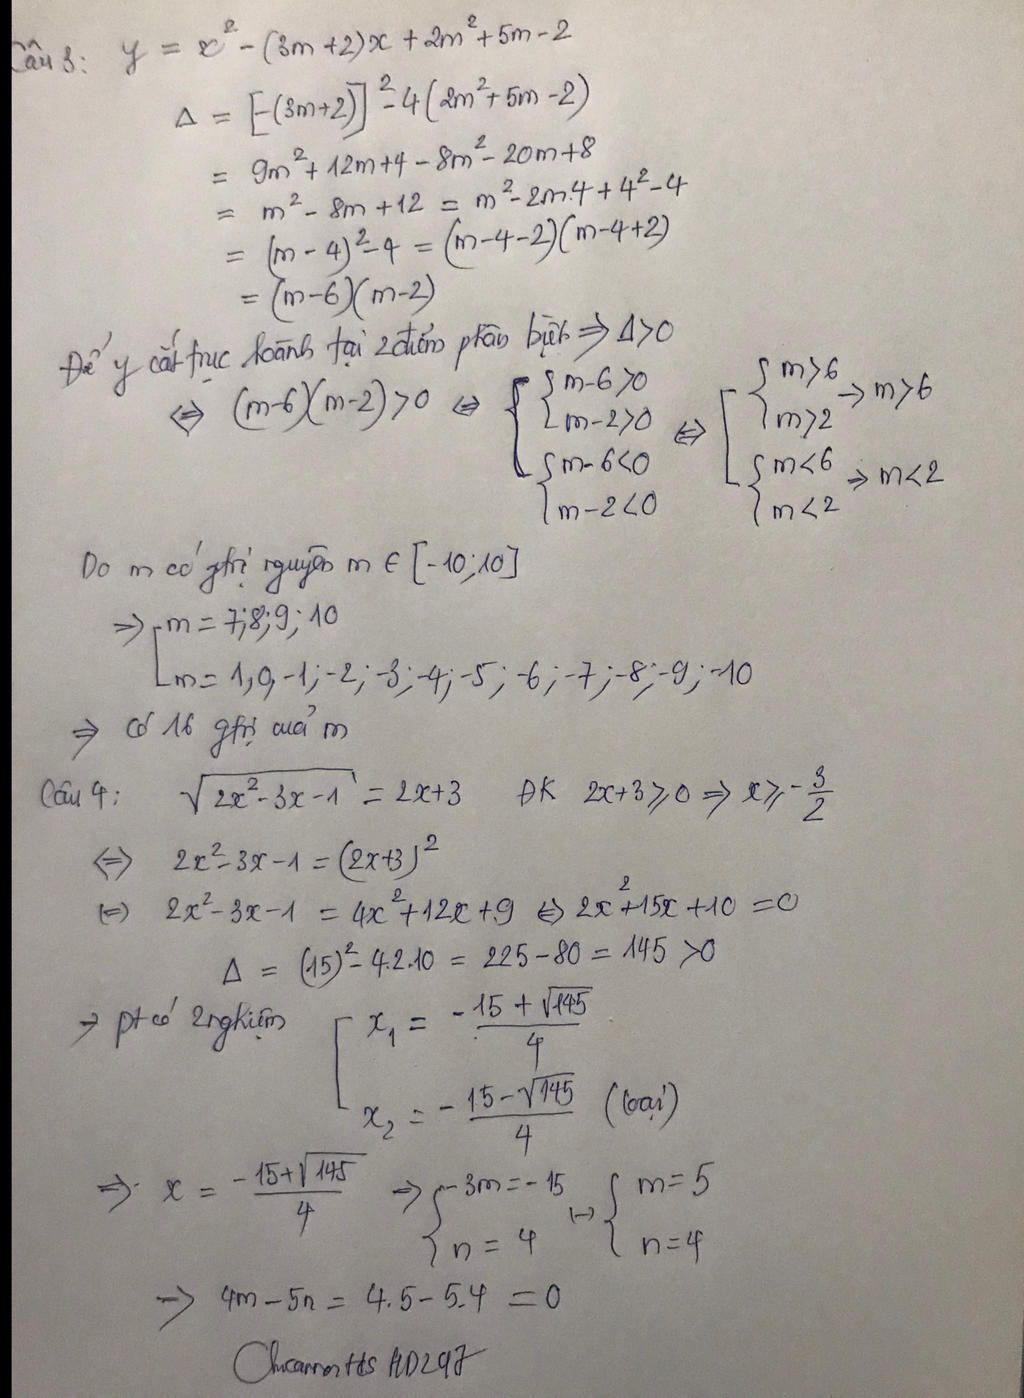 Câu 3: y = x² - (3m+2)x + 2m² + 5m - 2
Δ = [-(3m+2)]² - 4(2m² + 5m - 2)
= 9m² + 12m + 4 - 8m² - 20m + 8
= m² - 8m + 12 = m² - 2m.4 + 4² - 4
= (m - 4)² - 4 = (m-4-2)(m-4+2)
= (m-6)(m-2)
Để y cắt trục hoành tại 2 điểm phân biệt ⇒ Δ>0
⇔ (m-6)(m-2)>0 ⇔ [ { m-6>0 ; m-2>0 ; { m-6<0 ; m-2<0 ⇔ [ { m>6 ; m>2 → m>6 ; { m<6 ; m<2 ⇒ m<2
Do m có gtrị nguyên m ∈ [-10;10]
⇒ [ m = 7;8;9;10
m = 1,0,-1;-2;-3;-4;-5;-6;-7;-8;-9;-10
⇒ Có 16 gtrị của m
Câu 4: √(2x²-3x-1) = 2x+3 ĐK 2x+3 ≥ 0 ⇒ x ≥ -3/2
⇔ 2x²-3x-1 = (2x+3)²
⇔ 2x²-3x-1 = 4x²+12x+9 ⇔ 2x²+15x+10 = 0
Δ = (15)² - 4.2.10 = 225-80 = 145 >0
→ pt có 2 nghiệm [ x₁ = (-15+√145)/4
x₂ = (-15-√145)/4 (loại)
⇒ x = (-15+√145)/4 ⇒ { -3m = -15 ; n = 4 ⇔ { m = 5 ; n = 4
→ 4m-5n = 4.5-5.4 = 0